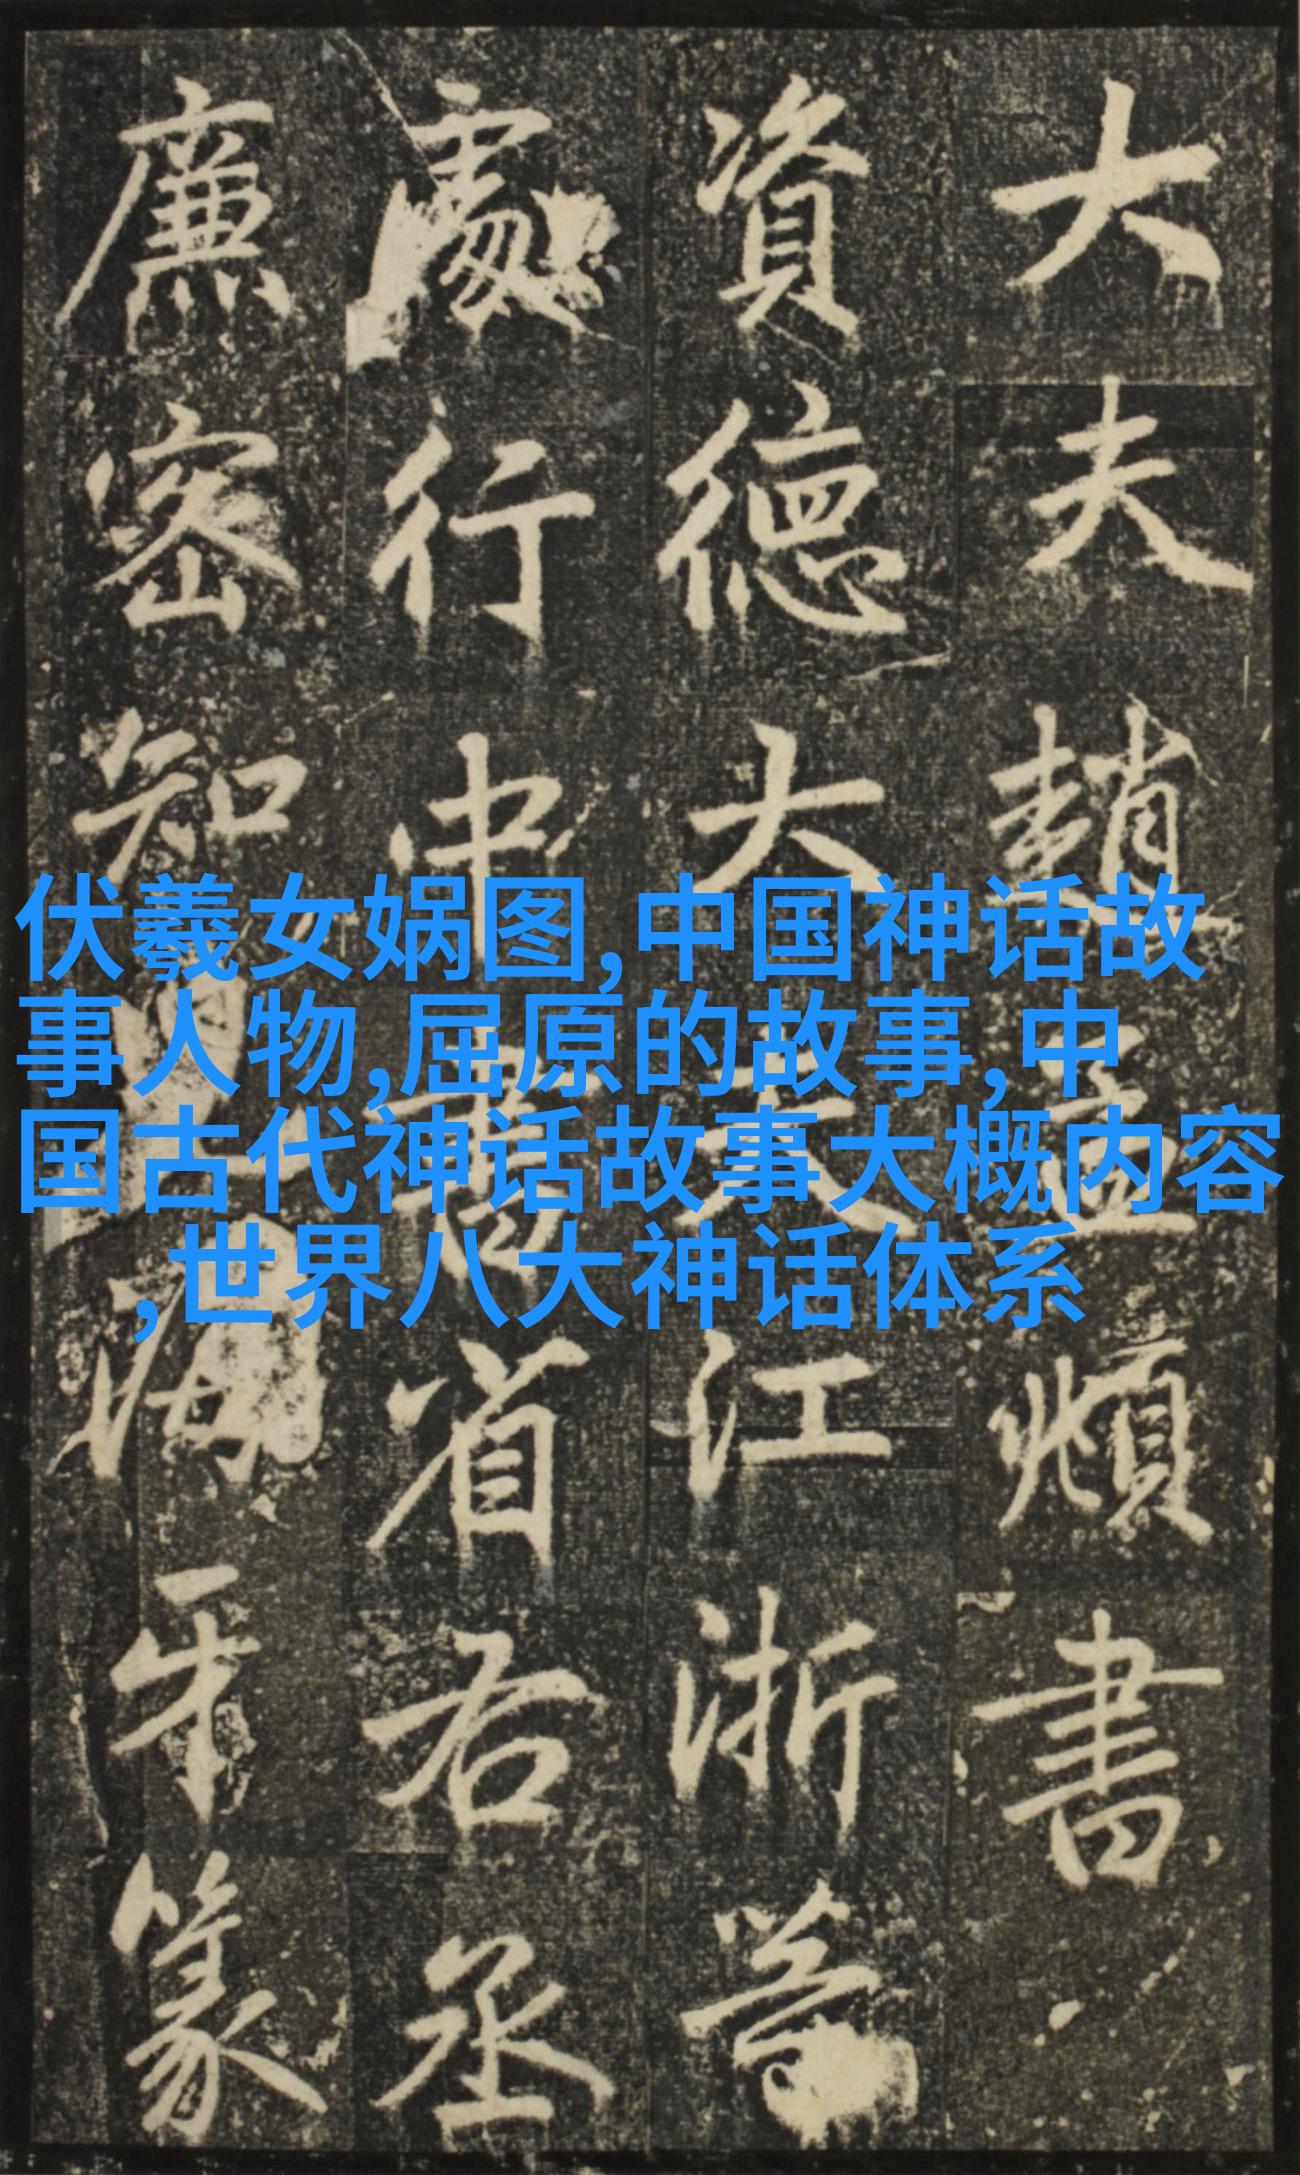 大夫趙孟頫書
資德大夫江浙等
處行中書省右丞
廉密知
海牙篆
伏羲女娲图,中国神话故
事人物,屈原的故事,中
国古代神话故事大概内容
,世界八大神话体系